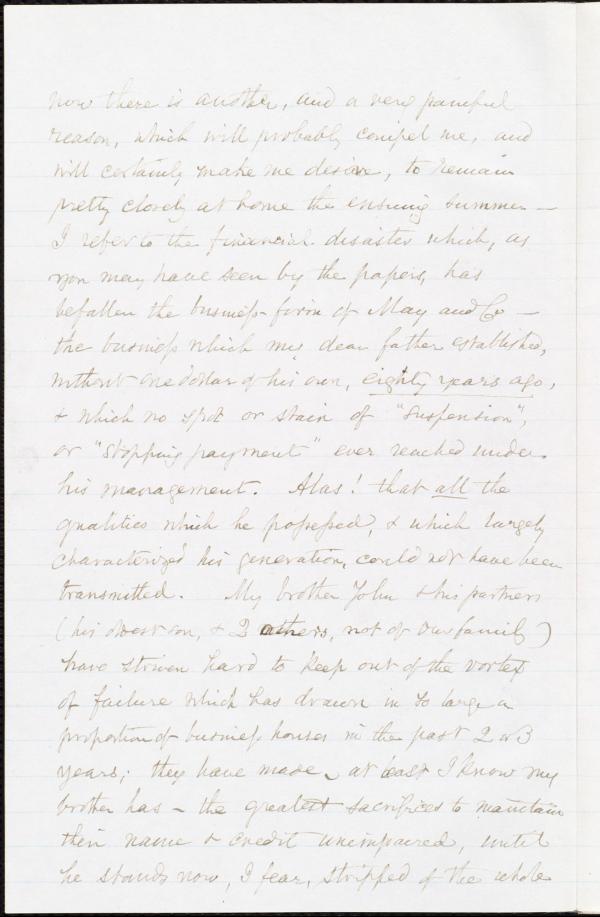 now there is another, and a very painful
reason, which will probably compel me, and
will certainly make me desire, to remain
pretty closely at home the ensuing summer —
I refer to the financial disaster which, as
you may have seen by the papers, has
befallen the business-firm of May and Co —
the business which my dear father established,
without one dollar of his own, eighty years ago,
& which no spot or stain of "suspension",
or "stopping payment" ever reached under
his management. Alas! that all the
qualities which he possessed, & which largely
characterized his generation, could not have been
transmitted. My brother John & his partners
(his oldest son, & 2 others, not of our family)
have striven hard to keep out of the vortex
of failure which has drawn in so large a
proportion of business houses in the past 2 or 3
years; they have made, at least I know my
brother has — the greatest sacrifices to maintain
their name & credit unimpaired, until
he stands now, I fear, stripped of the whole